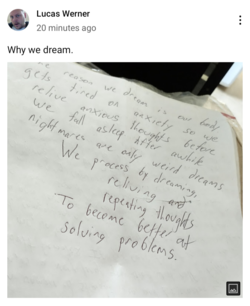 Lucas Werner
20 minutes ago
Why we dream.
reason we dream is our body
gets tired on anxiety so we
relive anxious thoughts before
we fall asleep After awhile
nightmares are only weird dreams
We process by dreaming,
reliving and
repeating thoughts
To become better at
solving problems.